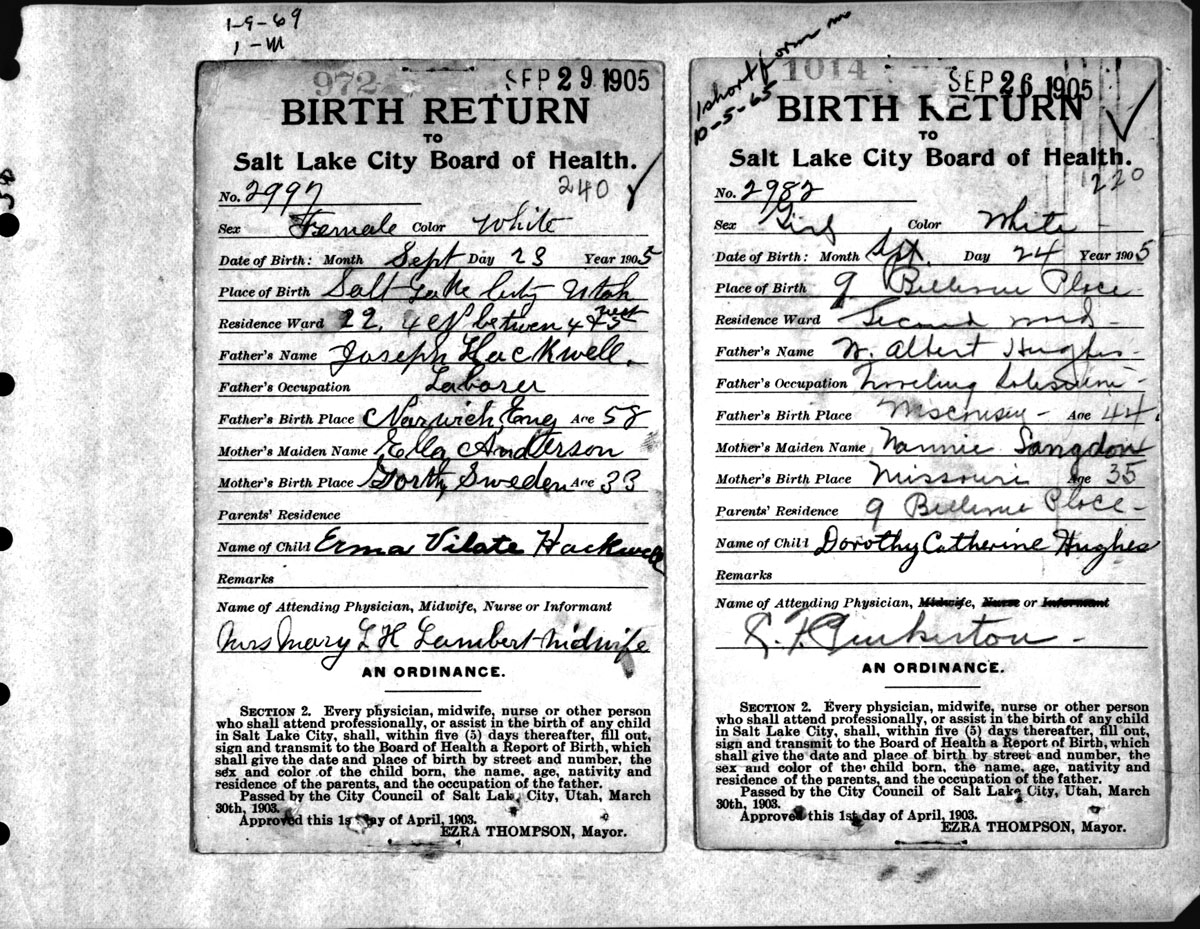 1-9-69
1-M
972
SEP 29 1905
BIRTH RETURN
TO
Salt Lake City Board of Health.
240
No. 2997
Sex Female Color White
Date of Birth: Month Sept Day 23 Year 1905
Place of Birth Salt Lake City Utah
Residence Ward 22. 4 N betwen 4 & 5 west
Father's Name Joseph Hackwell.
Father's Occupation Laborer
Father's Birth Place Norwich, Eng Age 58
Mother's Maiden Name Ella Anderson
Mother's Birth Place Sweden Age 33
Parents' Residence
Name of Child Erma Vilate Hackwell
Remarks
Name of Attending Physician, Midwife, Nurse or Informant
Mrs Mary L H Lambert midwife
AN ORDINANCE.
SECTION 2. Every physician, midwife, nurse or other person
who shall attend professionally, or assist in the birth of any child
in Salt Lake City, shall, within five (5) days thereafter, fill out,
sign and transmit to the Board of Health a Report of Birth, which
shall give the date and place of birth by street and number, the
sex and color of the child born, the name, age, nativity and
residence of the parents, and the occupation of the father.
Passed by the City Council of Salt Lake City, Utah, March
30th, 1903.
Approved this 1st day of April, 1903.
EZRA THOMPSON, Mayor.
1 short form
10-5-65
1014
SEP 26 1905
BIRTH RETURN
TO
Salt Lake City Board of Health.
220
No. 2982
Sex Girl Color White
Date of Birth: Month Sept. Day 24 Year 1905
Place of Birth 9 Bellevue Place
Residence Ward Second
Father's Name W. Albert Hughes
Father's Occupation Traveling Salesman
Father's Birth Place Wisconsin Age 44.
Mother's Maiden Name Nannie Langdon
Mother's Birth Place Missouri Age 35
Parents' Residence 9 Bellevue Place
Name of Child Dorothy Catherine Hughes
Remarks
Name of Attending Physician, Midwife, Nurse or Informant
Pinkerton
AN ORDINANCE.
SECTION 2. Every physician, midwife, nurse or other person
who shall attend professionally, or assist in the birth of any child
in Salt Lake City, shall, within five (5) days thereafter, fill out,
sign and transmit to the Board of Health a Report of Birth, which
shall give the date and place of birth by street and number, the
sex and color of the child born, the name, age, nativity and
residence of the parents, and the occupation of the father.
Passed by the City Council of Salt Lake City, Utah, March
30th, 1903.
Approved this 1st day of April, 1903.
EZRA THOMPSON, Mayor.